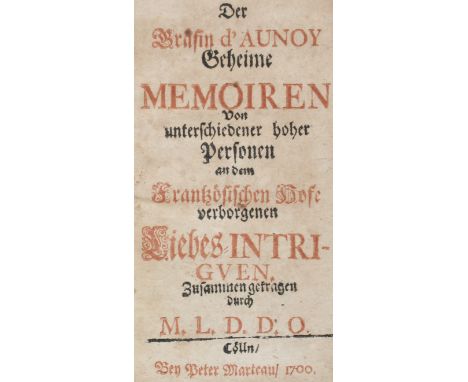 Der
Gräfin d'AUNOY
Geheime
MEMOIREN
Von
unterschiedener hoher
Personen
an dem
Frantzösischen Hofe
verborgenen
Liebes-INTRI-
GVEN.
Zusammen getragen
durch
M. L. D. D'. O.
Cölln/
Bey Peter Marteau/ 1700.